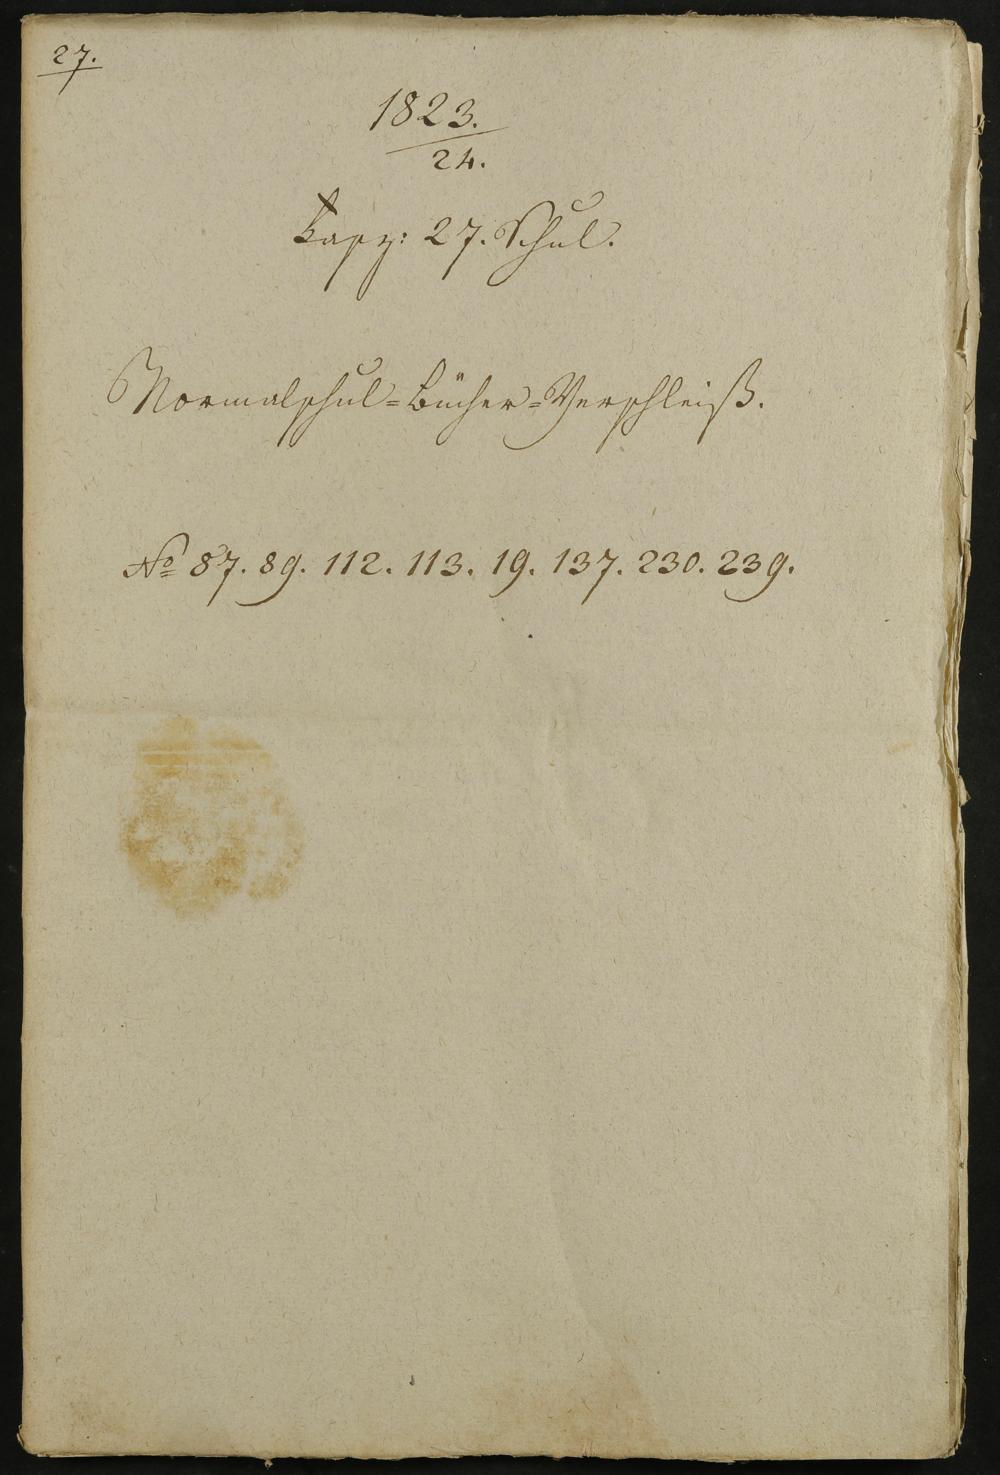 27.
1823.
24.
Fasz: 27. Schul.
Normalschul=Bücher=Verschleiß.
No 87. 89. 112. 113. 19. 137. 230. 239.